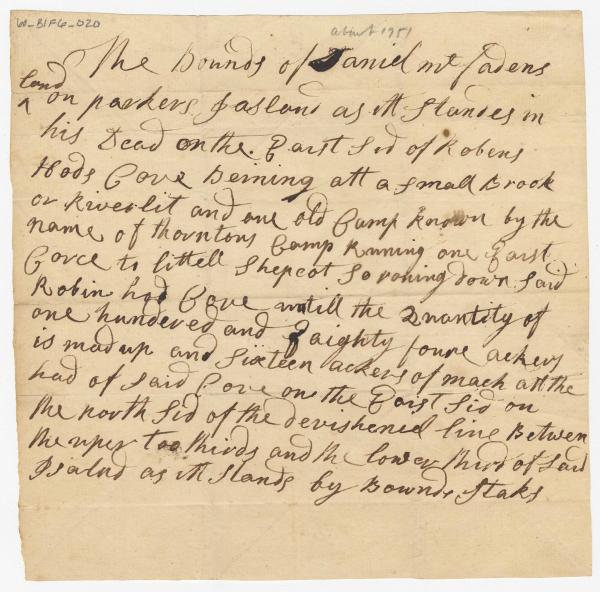 W-B1F6-020
about 1751
The Bounds of Daniel mc fadens
land
^ on parkers Jasland as itt Standes in
his Dead on the East Sid of Robens
Hods Cove Beining att a Small Brook
or Riverlit and one old Camp known by the
name of thorntons Camp Runing one East
Corce to littell Shepcot So roning down Said
Robin hod Cove untill the Quantity of
one hundered and Eaighty foure ackers
is mad up and Sixteen ackers of mach att the
had of Said Cove on the East Sid on
the north Sid of the devishened line Between
the uper too thirds and the lower third of Said
Jsalnd as itt Stands by Bownds Staks